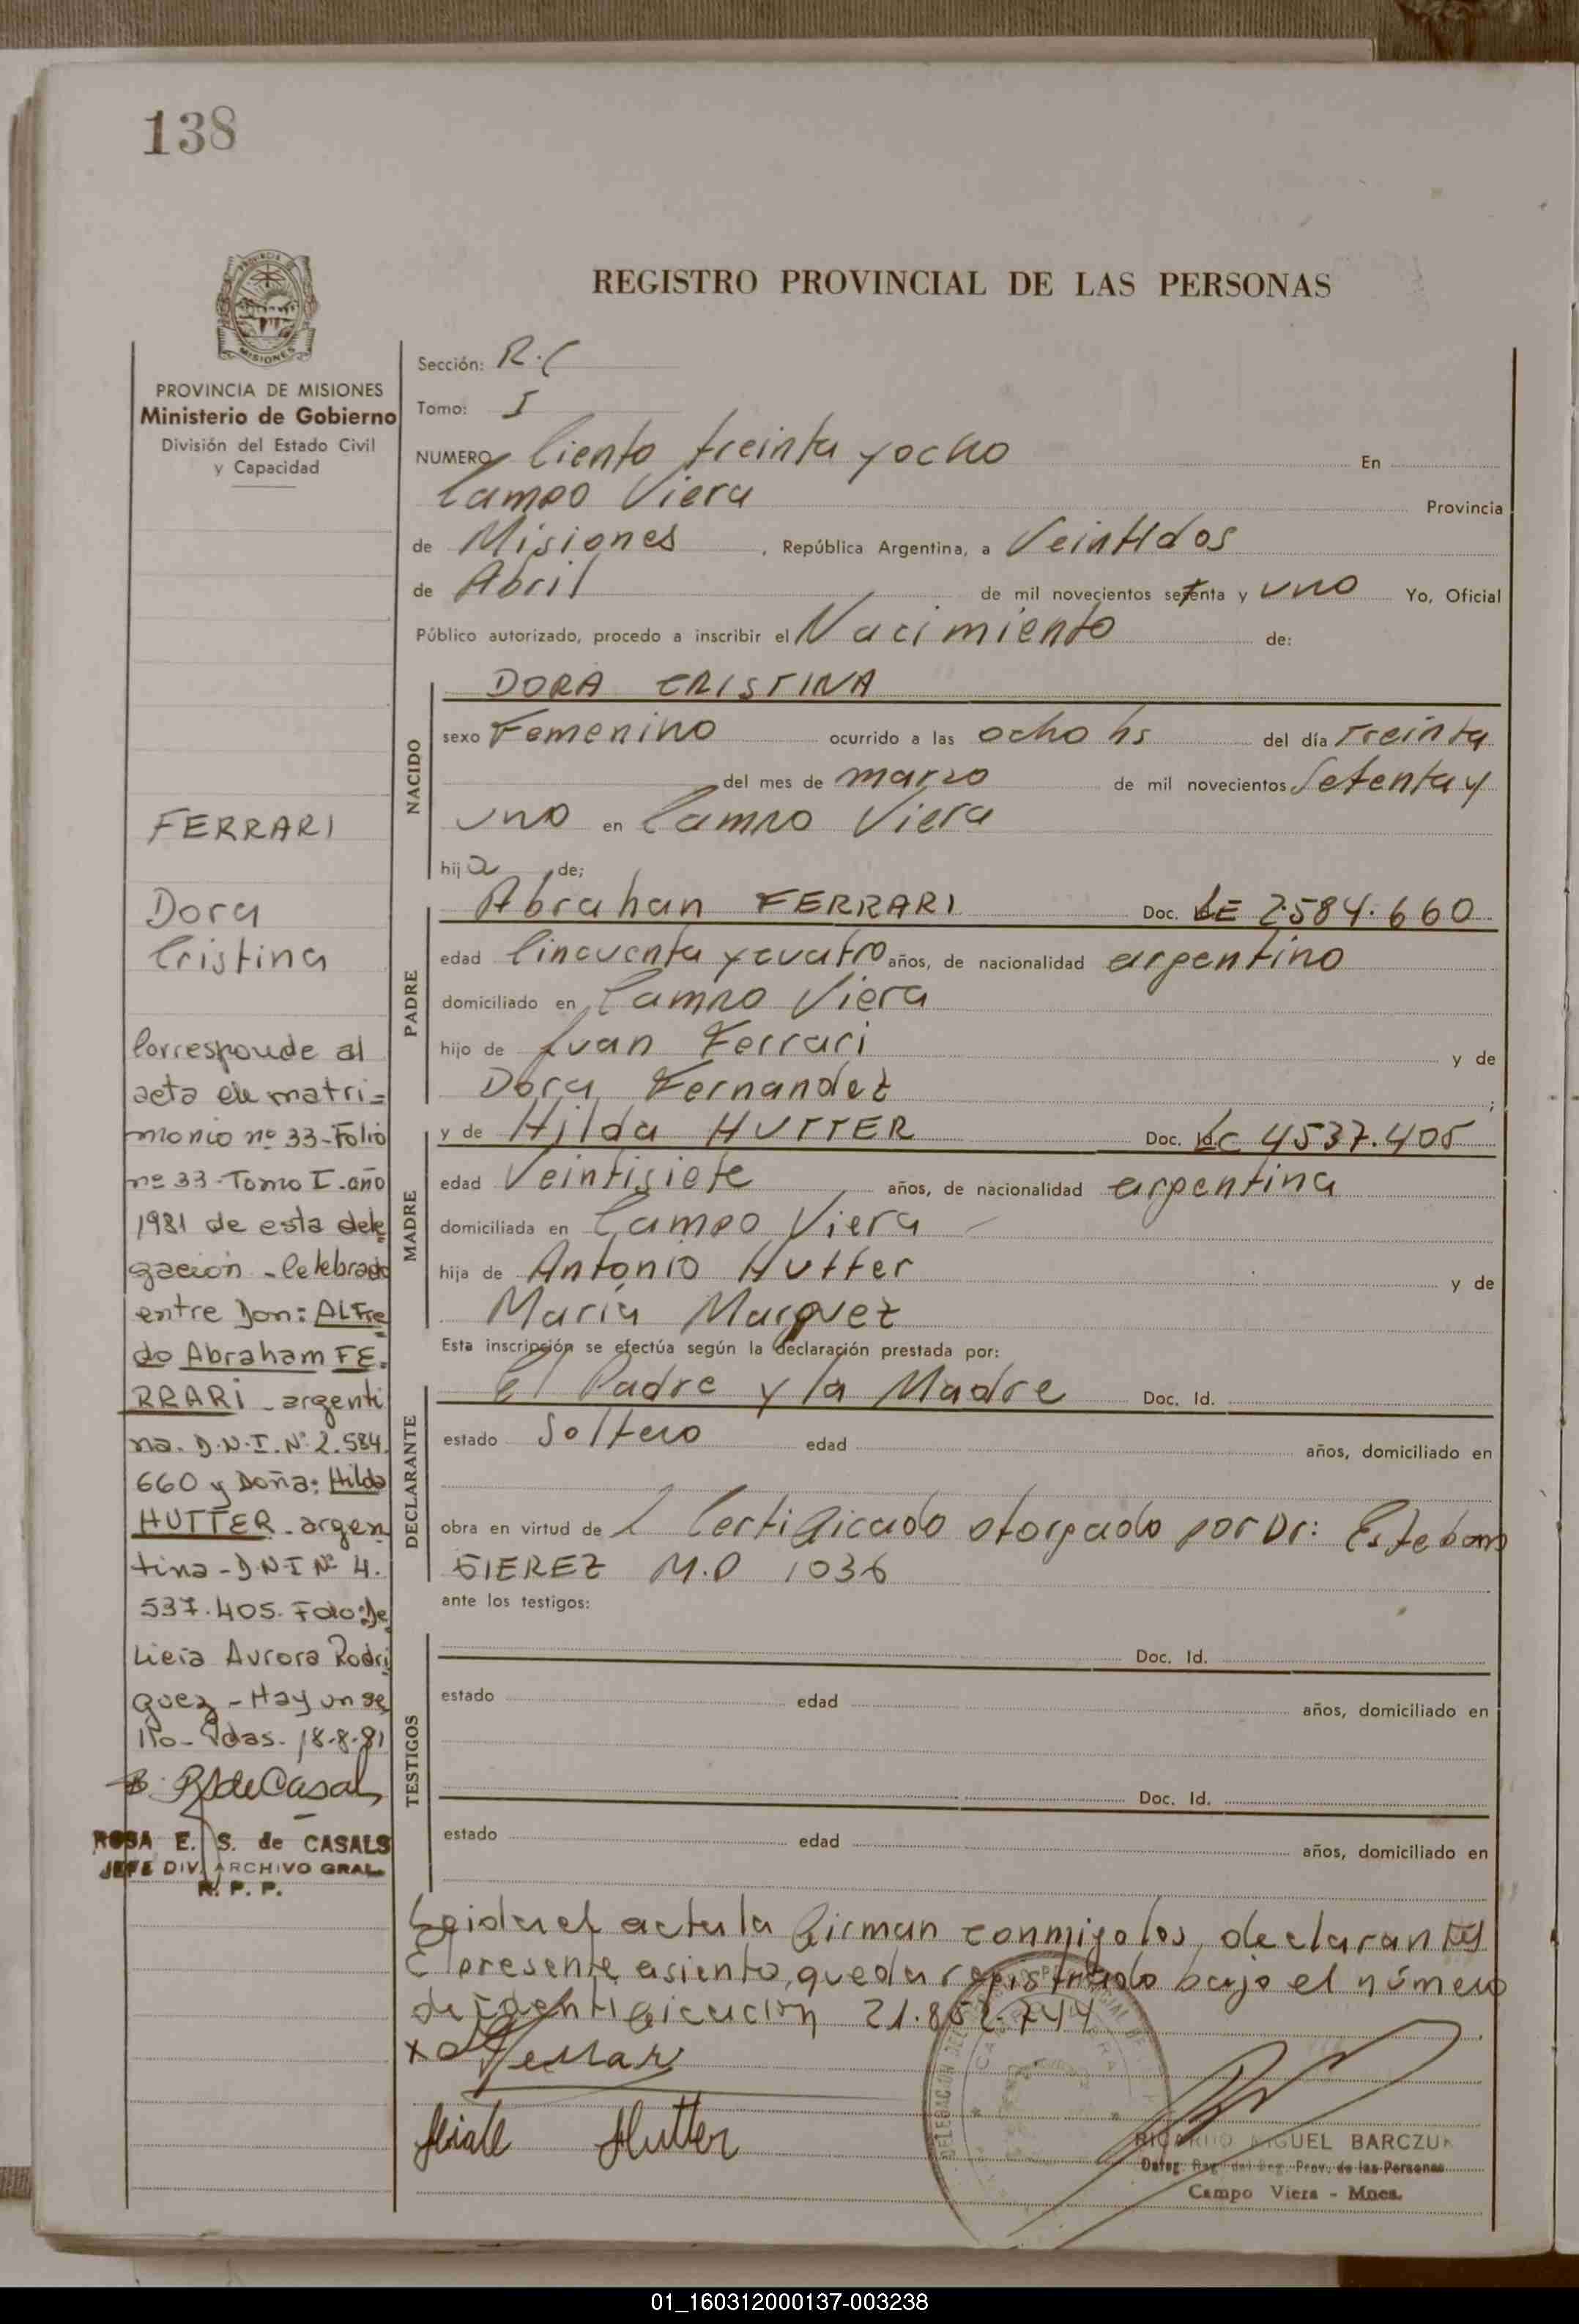 138
PROVINCIA DE MISIONES
MISIONES
PROVINCIA DE MISIONES
Ministerio de Gobierno
División del Estado Civil
y Capacidad
FERRARI
Dora
Cristina
Corresponde al
acta de matri=
monio nº 33-Folio
nº 33-Tomo I-año
1981 de esta dele
gación - Celebrado
entre Don: ALFre
do Abraham FE
RRARI - argenti
na. D.N.I. Nº 2.584.
660 y Doña: Hilda
HUTTER - argen
tina - D.N.I Nº 4.
537.405. Fdo: De
Licia Aurora Rodri
guez - Hay un se
llo - Pdas. 18-8-81
ROSA E. S. de CASALS
JEFE DIV. ARCHIVO GRAL.
R. P. P.
REGISTRO PROVINCIAL DE LAS PERSONAS
Sección: R.C
Tomo: I
NUMERO Ciento treinta y ocho En
Campo Viera Provincia
de Misiones, República Argentina, a Veintidos
de Abril de mil novecientos setenta y uno Yo, Oficial
Público autorizado, procedo a inscribir el Nacimiento de:
NACIDO
DORA CRISTINA
sexo Femenino ocurrido a las ocho hs del día treinta
del mes de marzo de mil novecientos Setenta y
uno en Campo Viera
hija de;
PADRE
Abrahan FERRARI Doc. LE 2584.660
edad Cincuenta y cuatro años, de nacionalidad argentino
domiciliado en Campo Viera
hijo de Juan Ferrari y de
Dora Fernandez ;
MADRE
y de Hilda HUTTER Doc. LC 4537.405
edad Veintisiete años, de nacionalidad argentina
domiciliada en Campo Viera
hija de Antonio Hutter y de
Maria Marquez
Esta inscripción se efectúa según la declaración prestada por:
DECLARANTE
El Padre y la Madre Doc. Id.
estado Soltero edad años, domiciliado en
obra en virtud de l Certificado otorgado por Dr: Esteban
GIEREZ M.P 1036
ante los testigos:
TESTIGOS
Doc. Id.
estado edad años, domiciliado en
Doc. Id.
estado edad años, domiciliado en
Leida el acta la firman conmigo los declarantes
El presente asiento queda registrado bajo el número
de identificacion 21.852.744
x Ferrari
Hilde Hutter
RICARDO MIGUEL BARCZUK
Deleg. Reg. del Reg. Prov. de las Personas
Campo Viera - Mnes.
01_160312000137-003238